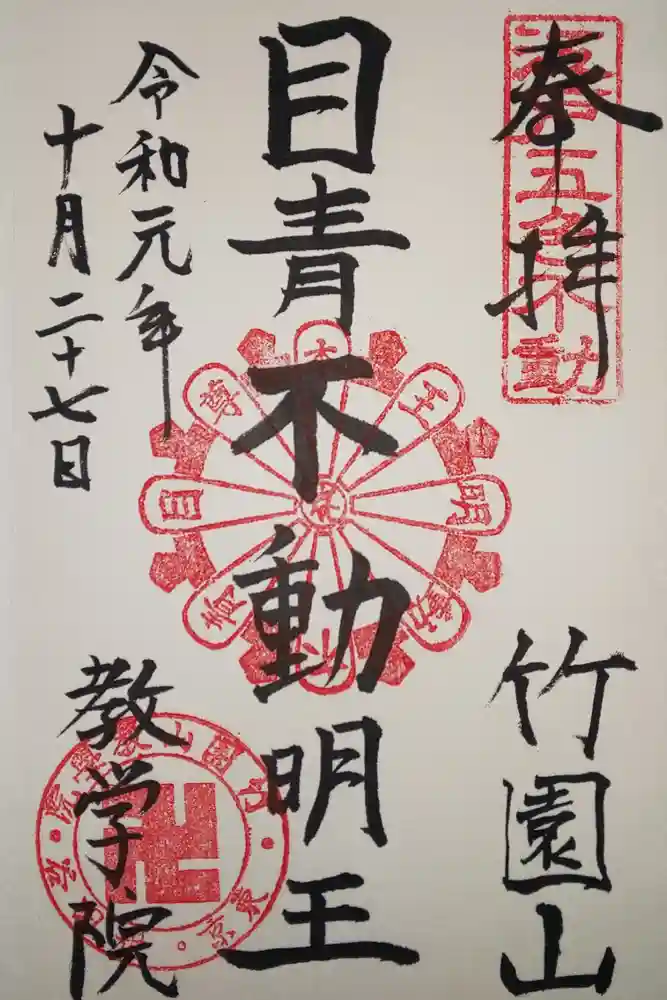 奉拝
竹園山
目青不動明王
令和元年
十月二十七日
教学院